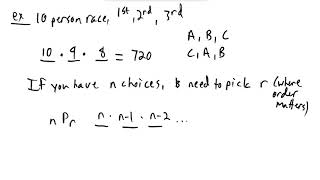 ex 10 person race, 1st, 2nd, 3rd
A, B, C
10 · 9 · 8 = 720
C, A, B
If you have n choices, & need to pick r (where order matters)
n Pr n · n-1 · n-2 ...